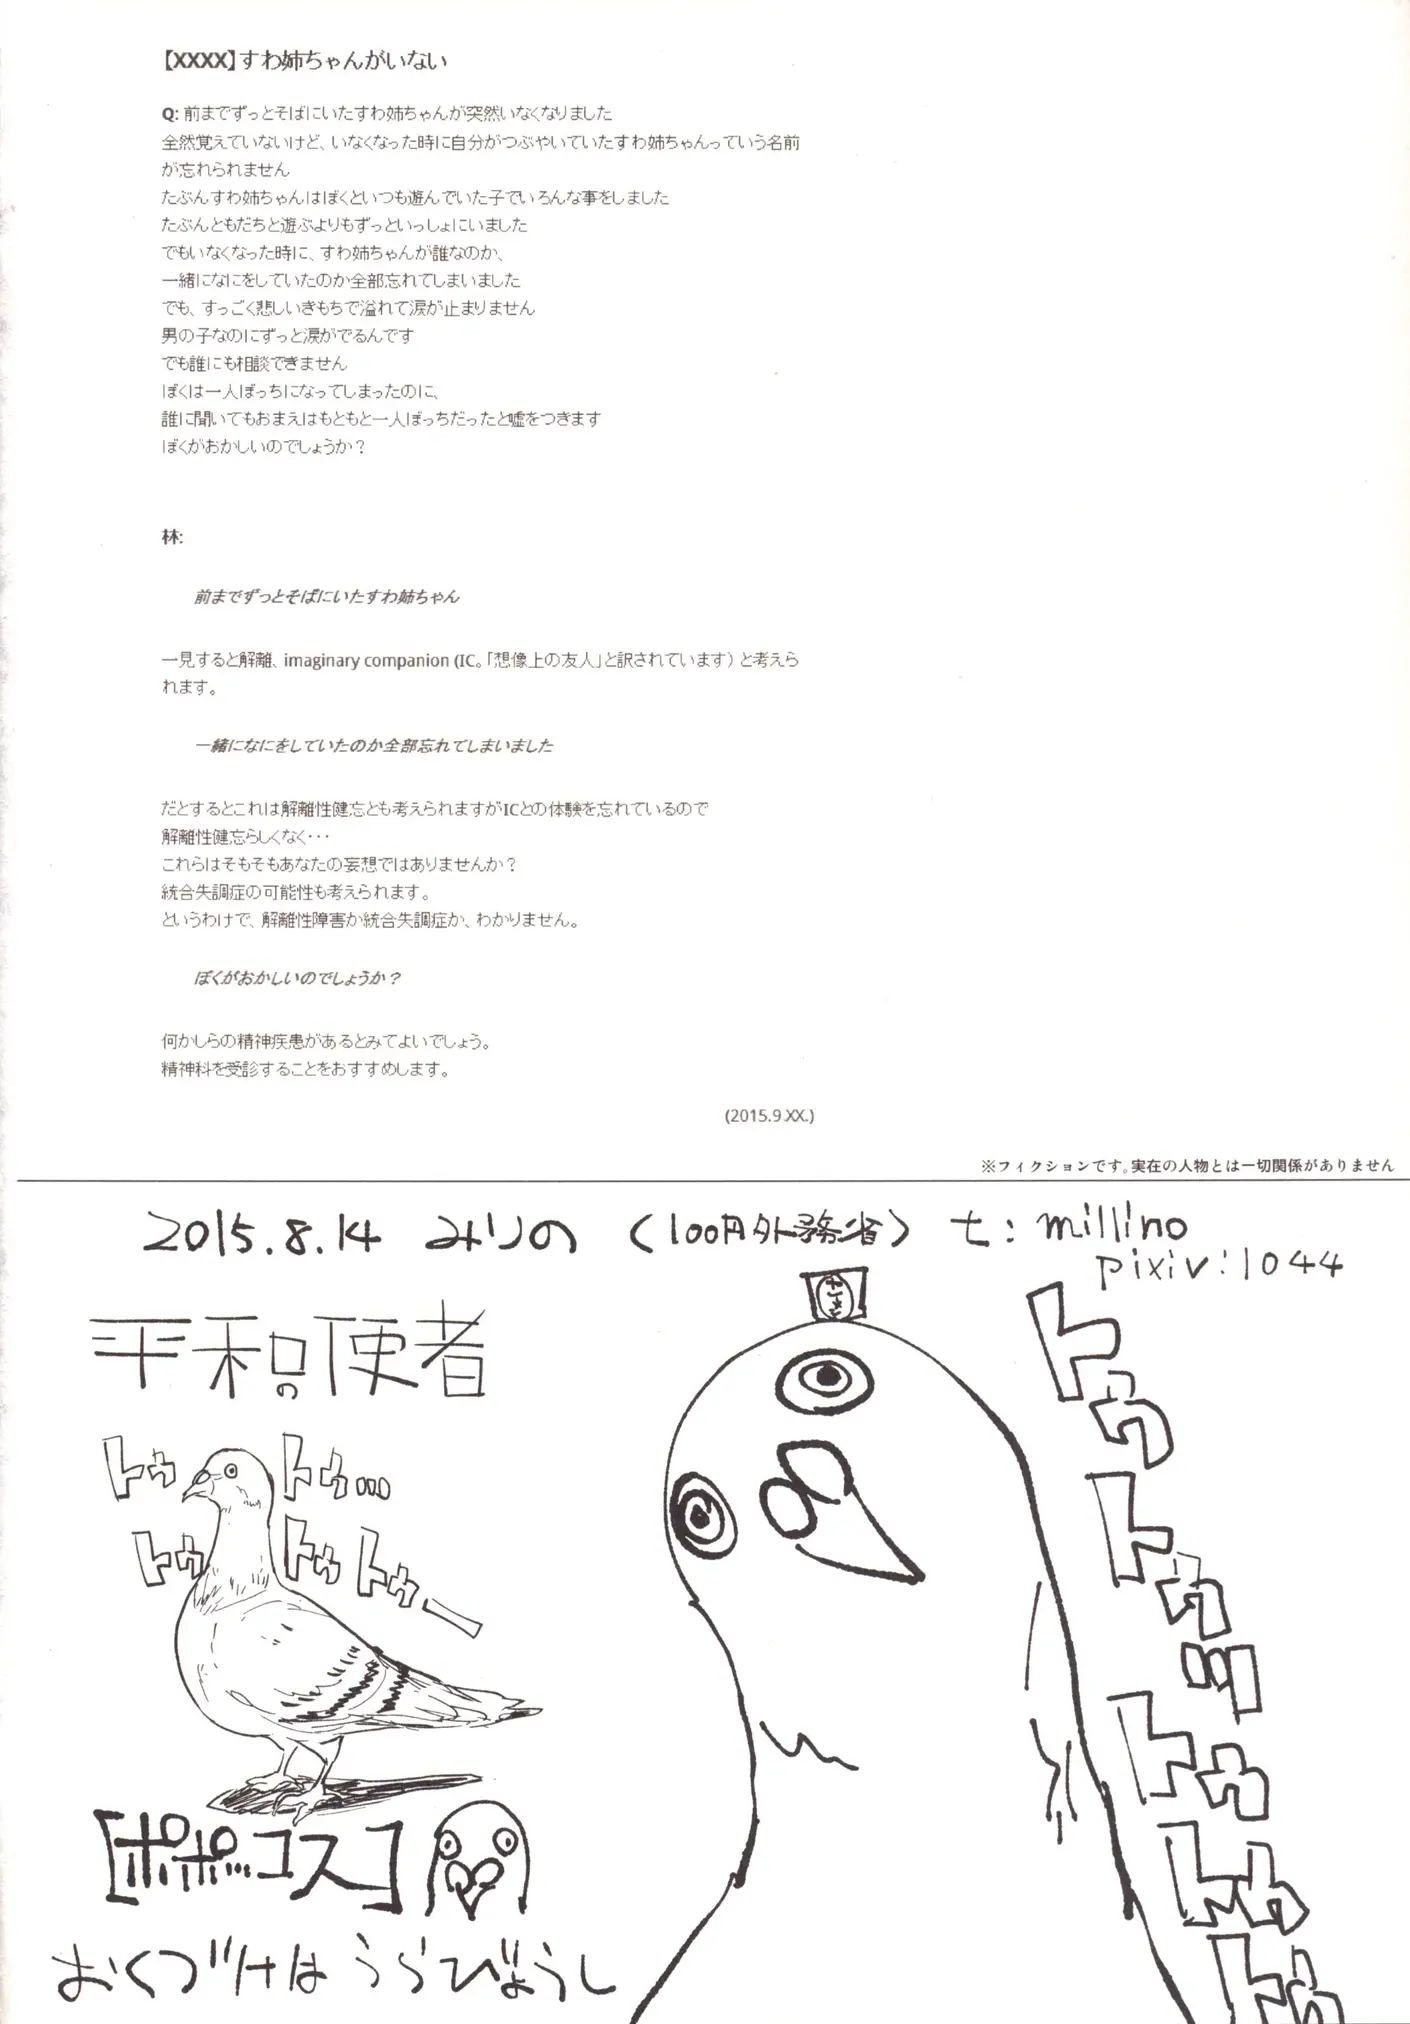 【XXXX】すわ姉ちゃんがいない
Q: 前までずっとそばにいたすわ姉ちゃんが突然いなくなりました
全然覚えていないけど、いなくなった時に自分がつぶやいていたすわ姉ちゃんっていう名前
が忘れられません
たぶんすわ姉ちゃんはぼくといつも遊んでいた子でいろんな事をしました
たぶんともだちと遊ぶよりもずっといっしょにいました
でもいなくなった時に、すわ姉ちゃんが誰なのか、
一緒になにをしていたのか全部忘れてしまいました
でも、すっごく悲しいきもちで溢れて涙が止まりません
男の子なのにずっと涙がでるんです
でも誰にも相談できません
ぼくは一人ぼっちになってしまったのに、
誰に聞いてもおまえはもともと一人ぼっちだったと嘘をつきます
ぼくがおかしいのでしょうか？
林:
前までずっとそばにいたすわ姉ちゃん
一見すると解離、imaginary companion (IC。「想像上の友人」と訳されています）と考えら
れます。
一緒になにをしていたのか全部忘れてしまいました
だとするとこれは解離性健忘とも考えられますがICとの体験を忘れているので
解離性健忘らしくなく・・・
これらはそもそもあなたの妄想ではありませんか？
統合失調症の可能性も考えられます。
というわけで、解離性障害か統合失調症か、わかりません。
ぼくがおかしいのでしょうか？
何かしらの精神疾患があるとみてよいでしょう。
精神科を受診することをおすすめします。
(2015.9.XX.)
※フィクションです。実在の人物とは一切関係がありません
2015.8.14 みりの （100円外務省） t: millino
pixiv:1044
平和の使者
トゥ トゥ…
トゥ トゥ トゥー
トゥ
トゥ
ッ
トゥ
トゥ
トゥ
[ポポッコス]
おくづけは うらびょうし